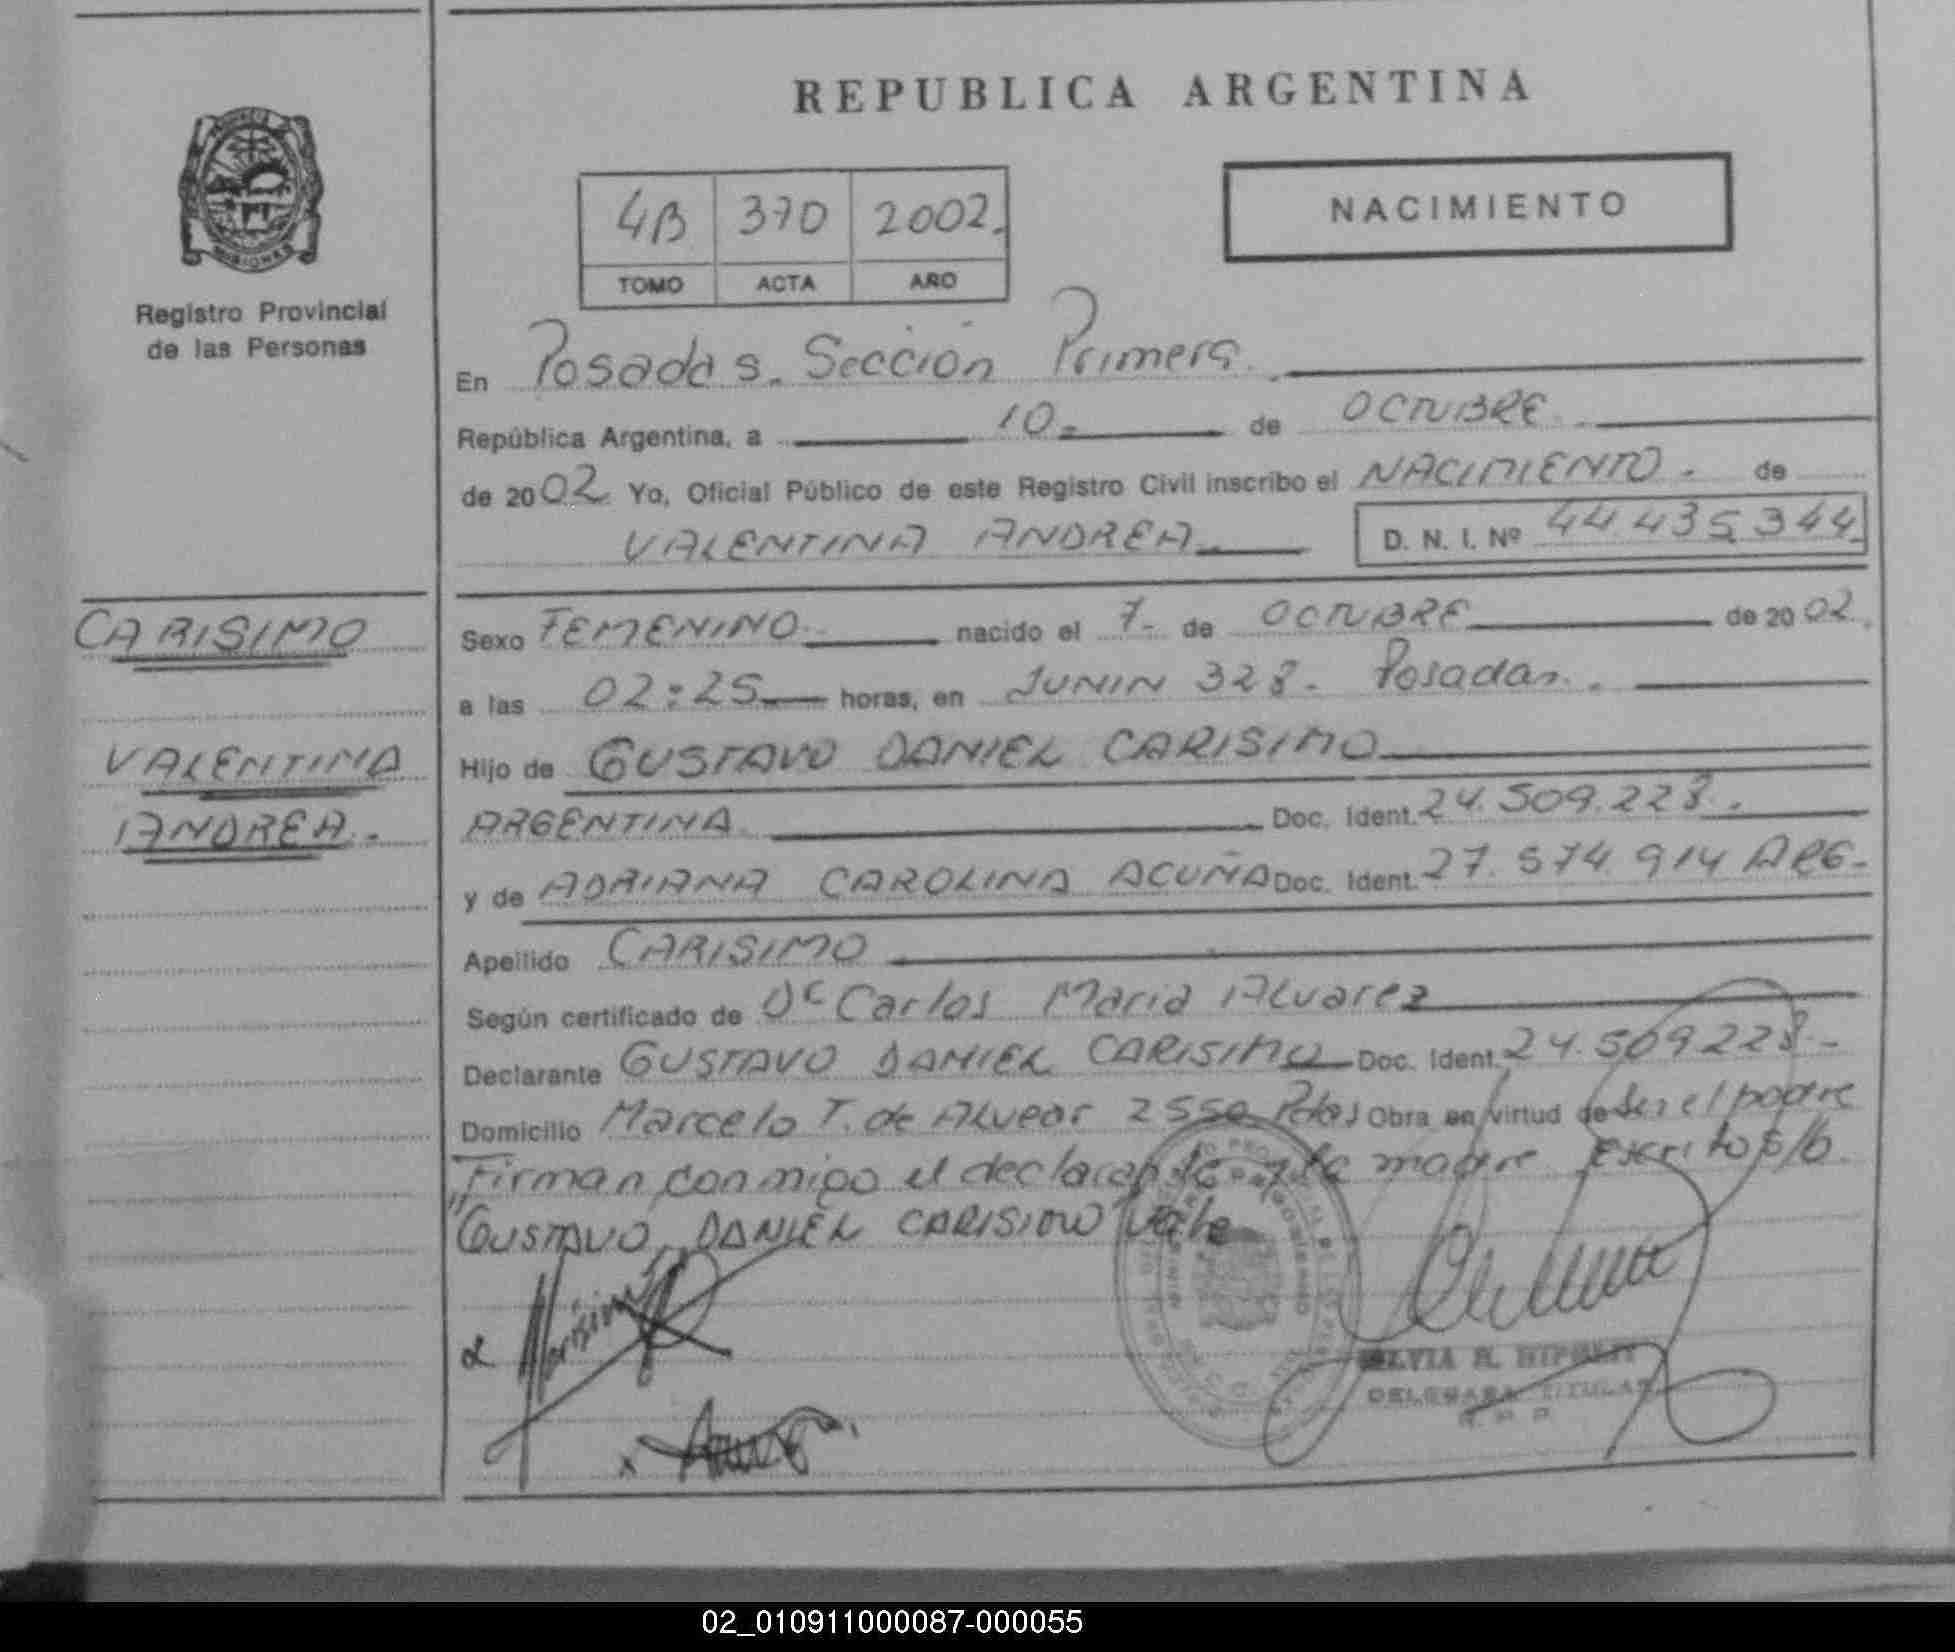 REPUBLICA ARGENTINA
NACIMIENTO
4B 370 2002.
TOMO ACTA AÑO
MISIONES
Registro Provincial
de las Personas
En Posadas. Sección Primera.
República Argentina, a 10. de OCTUBRE
de 2002. Yo, Oficial Público de este Registro Civil inscribo el NACIMIENTO. de
VALENTINA ANDREA D. N. I. Nº 44.435.344
CARISIMO
VALENTINA
ANDREA.
Sexo FEMENINO nacido el 7. de OCTUBRE de 2002.
a las 02:25 horas, en JUNIN 328. Posadas.
Hijo de GUSTAVO DANIEL CARISIMO
ARGENTINA Doc. Ident. 24.509.228.
y de ADRIANA CAROLINA ACUÑA Doc. Ident. 27.574.914 ARG.
Apellido CARISIMO
Según certificado de Dr Carlos Maria Alvarez
Declarante GUSTAVO DANIEL CARISIMO Doc. Ident. 24.509228.
Domicilio Marcelo T. de Alvear 2550 Pdas Obra en virtud de ser el padre
Firman conmigo el declarante y la madre Escrito s/b
"GUSTAVO DANIEL CARISIMO Vale
DELEGADA TITULAR
02_010911000087-000055